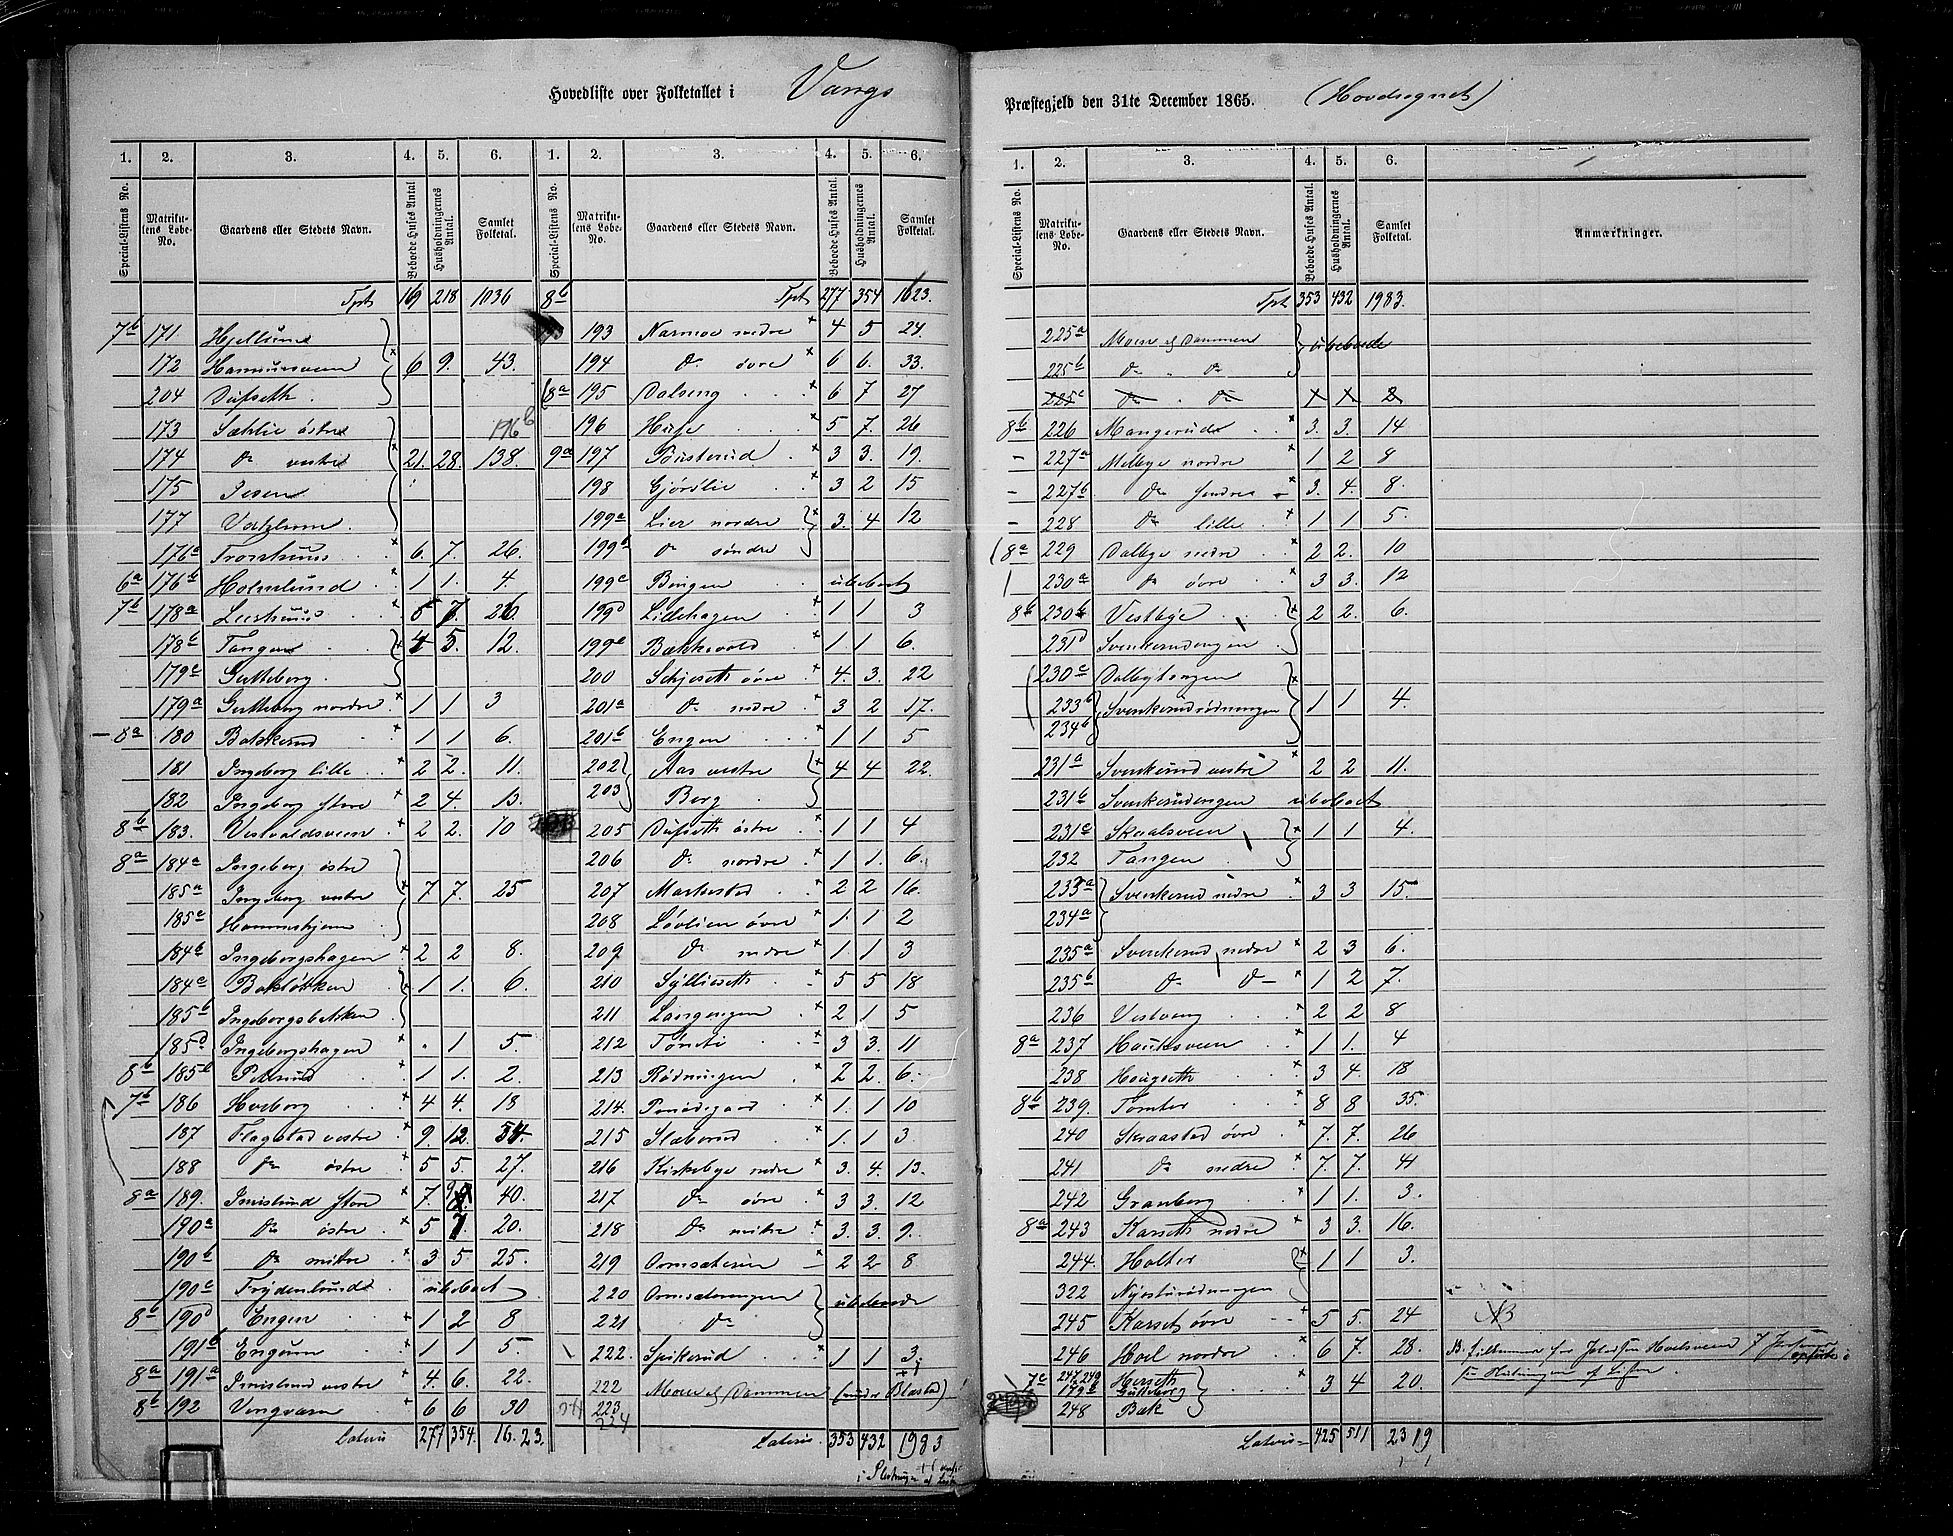 Hovedliste over Folketallet i Vangs Præstegjeld den 31te December 1865. (Hovedsognet)
1. 2. 3. 4. 5. 6. 1. 2. 3. 4. 5. 6.
Special-Listens No. Matrikulens Løbe-No. Gaardens eller Stedets Navn. Beboede Huses Antal Husholdningernes Antal. Samlet Folketal. Special-Listens No. Matrikulens Løbe-No. Gaardens eller Stedets Navn. Beboede Huses Antal. Husholdningernes Antal. Samlet Folketal.
Tpt 169 218 1036
7b 171 Hjellum
172 6 9. 43.
204
173 Sælie östre 176b
174 do vestre 21. 28. 138.
175 Jesen
177
176a 6. 7. 26.
6a 176b Holmlund 1 1. 4
7b 178a 5 7. 26.
178b Tangen 4 5. 12.
179c Gutteborg
179a Gutteborg nordre 1 1 3
8a 180 Bakkerud 1 1 6.
181 Ingeborg lille 2 2. 11.
182 Ingeborg store 2 4. 13.
8b 183. 2 2. 10
8a 184a Ingeborg östre
185a Ingeborg vestre 7 7. 25
185c
184b Ingeborghagen 2 2 8.
184c 1 1. 6.
185b Ingeborgsbakken
185d Ingeborghagen . 1 5.
8b 1 1. 2.
7b 186 Hverborg 4 4. 18
187 Flagstad vestre 9. 12. 54.
188 do östre 5 5. 27.
8a 189. Imislund store 7. 40.
190a do östre 5 7. 20.
190b do mitre 3 5 25.
190c Frydenlund ubeboet
8b 190d Engen 1 2 8
191b 1 1 5.
8a 191a Imislund vestre 4. 6. 22.
8b 192 6 6 30
Lateris 277 354. 16.23.
8b Tpt 277 354 1623.
193 Narmoe nedre 4 5 24.
194 do övre 6 6. 33.
8a 195 Dalseng 6 7 27
196 5 7. 26
9a 197 Busterud 3 3. 19.
198 Gjördlie 3 2 15
199a Lier nordre 3. 4 12
199b do söndre
199c Bingen ubeboet
199d Lillehagen 1 1 3
199e Bakkevold 1 1 6.
200 Schjeseth övre 4. 3. 22
201a do nedre 3 2 17.
201b Engen 1 1 5
202 Aas vestre 4 4 22.
203 Berg
205 östre 1 1 4
206 do nordre 1 1. 6.
207 Markestad 2 2 16.
208 Lövlien övre 1. 1 2
209 do nedre 1. 1 3
210 Sylliaseth 5 5 18
211 Langengen 2 1 5
212 3 3. 11
213 Rödningen 2 2. 6.
214. 1. 1 10
215 Slaberud 1. 1 3.
216 Kirkebye nedre 3. 4. 13.
217 do övre 3 3. 12
218 do mitre 3. 3. 9.
219 Ormsæteren 2 2 8
220
221 do
222. Spikerud 1 1 3
222 Moen og Dammen (under Blæstad)
223
224
Lateris. 353 432 1983
1. 2. 3. 4. 5. 6.
Special-Listens No. Matrikulens Løbe-No. Gaardens eller Stedets Navn. Beboede Huses Antal. Husholdningernes Antal. Samlet Folketal. Anmærkninger.
Tpt 353 432 1983.
225a Moen og Dammen ubeboede
225b do " do
225c do " do
8b 226 Mangerud 3. 3. 14
- 227a Melbye nordre 1 2 8
- 227b do söndre 3. 4. 8.
- 228 do lille 1 1 5.
8a 229 Dalbye nedre 2 2. 10
230a do övre 3 3. 12
8b 230b Vestbye 2 2. 6.
231d Svenkerudengen
230c Dalbytengen
233b Svenkerudrödningen 1 1 4.
234b
231a Svenkerud vestre 2 2 11.
231b Svenkerudengen ubeboet
231c 1 1 4.
232 Tangen
233a Svenkerud nedre 3 3 15.
234a
235a Svenkerud nedre 2 3 6.
235b do do 1 2 7.
236 Vestvang 2 2 8
8a 237 1 1. 4
238 Hougseth 3 4. 18
8b 239. Tomter 8 8 35.
240 Skraastad övre 7. 7. 26
241 do nedre 7. 7. 41
242 Granberg 1 1. 3.
8a 243 Karseth nedre 3 3. 16.
244 Holter 1 1 3.
322
245 Karset övre 5 5. 24
246 Hoel nordre 6 7. 28.
7c 247.249 Herseth 3 4 20.
179c Gutteborg
248 Bak
Lateris 425 511 2319